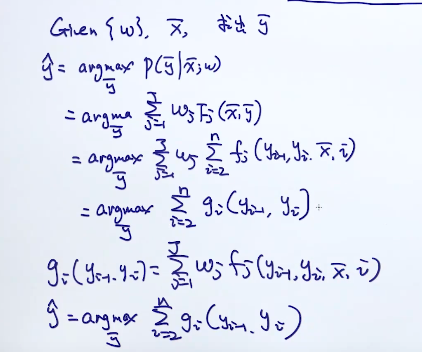 Given {w}, x̄, 求出 ȳ
ŷ = argmax_ȳ P(ȳ|x̄;w)
= argma_ȳ ∑_{j=1}^{J} w_j F_j(x̄,ȳ)
= argmax_ȳ ∑_{j=1}^{J} w_j ∑_{i=2}^{n} f_j(y_{i-1}, y_i, x̄, i)
= argmax_ȳ ∑_{i=2}^{n} g_i(y_{i-1}, y_i)
g_i(y_{i-1}, y_i) = ∑_{j=1}^{J} w_j f_j(y_{i-1}, y_i, x̄, i)
ŷ = argmax_ȳ ∑_{i=2}^{n} g_i(y_{i-1}, y_i)